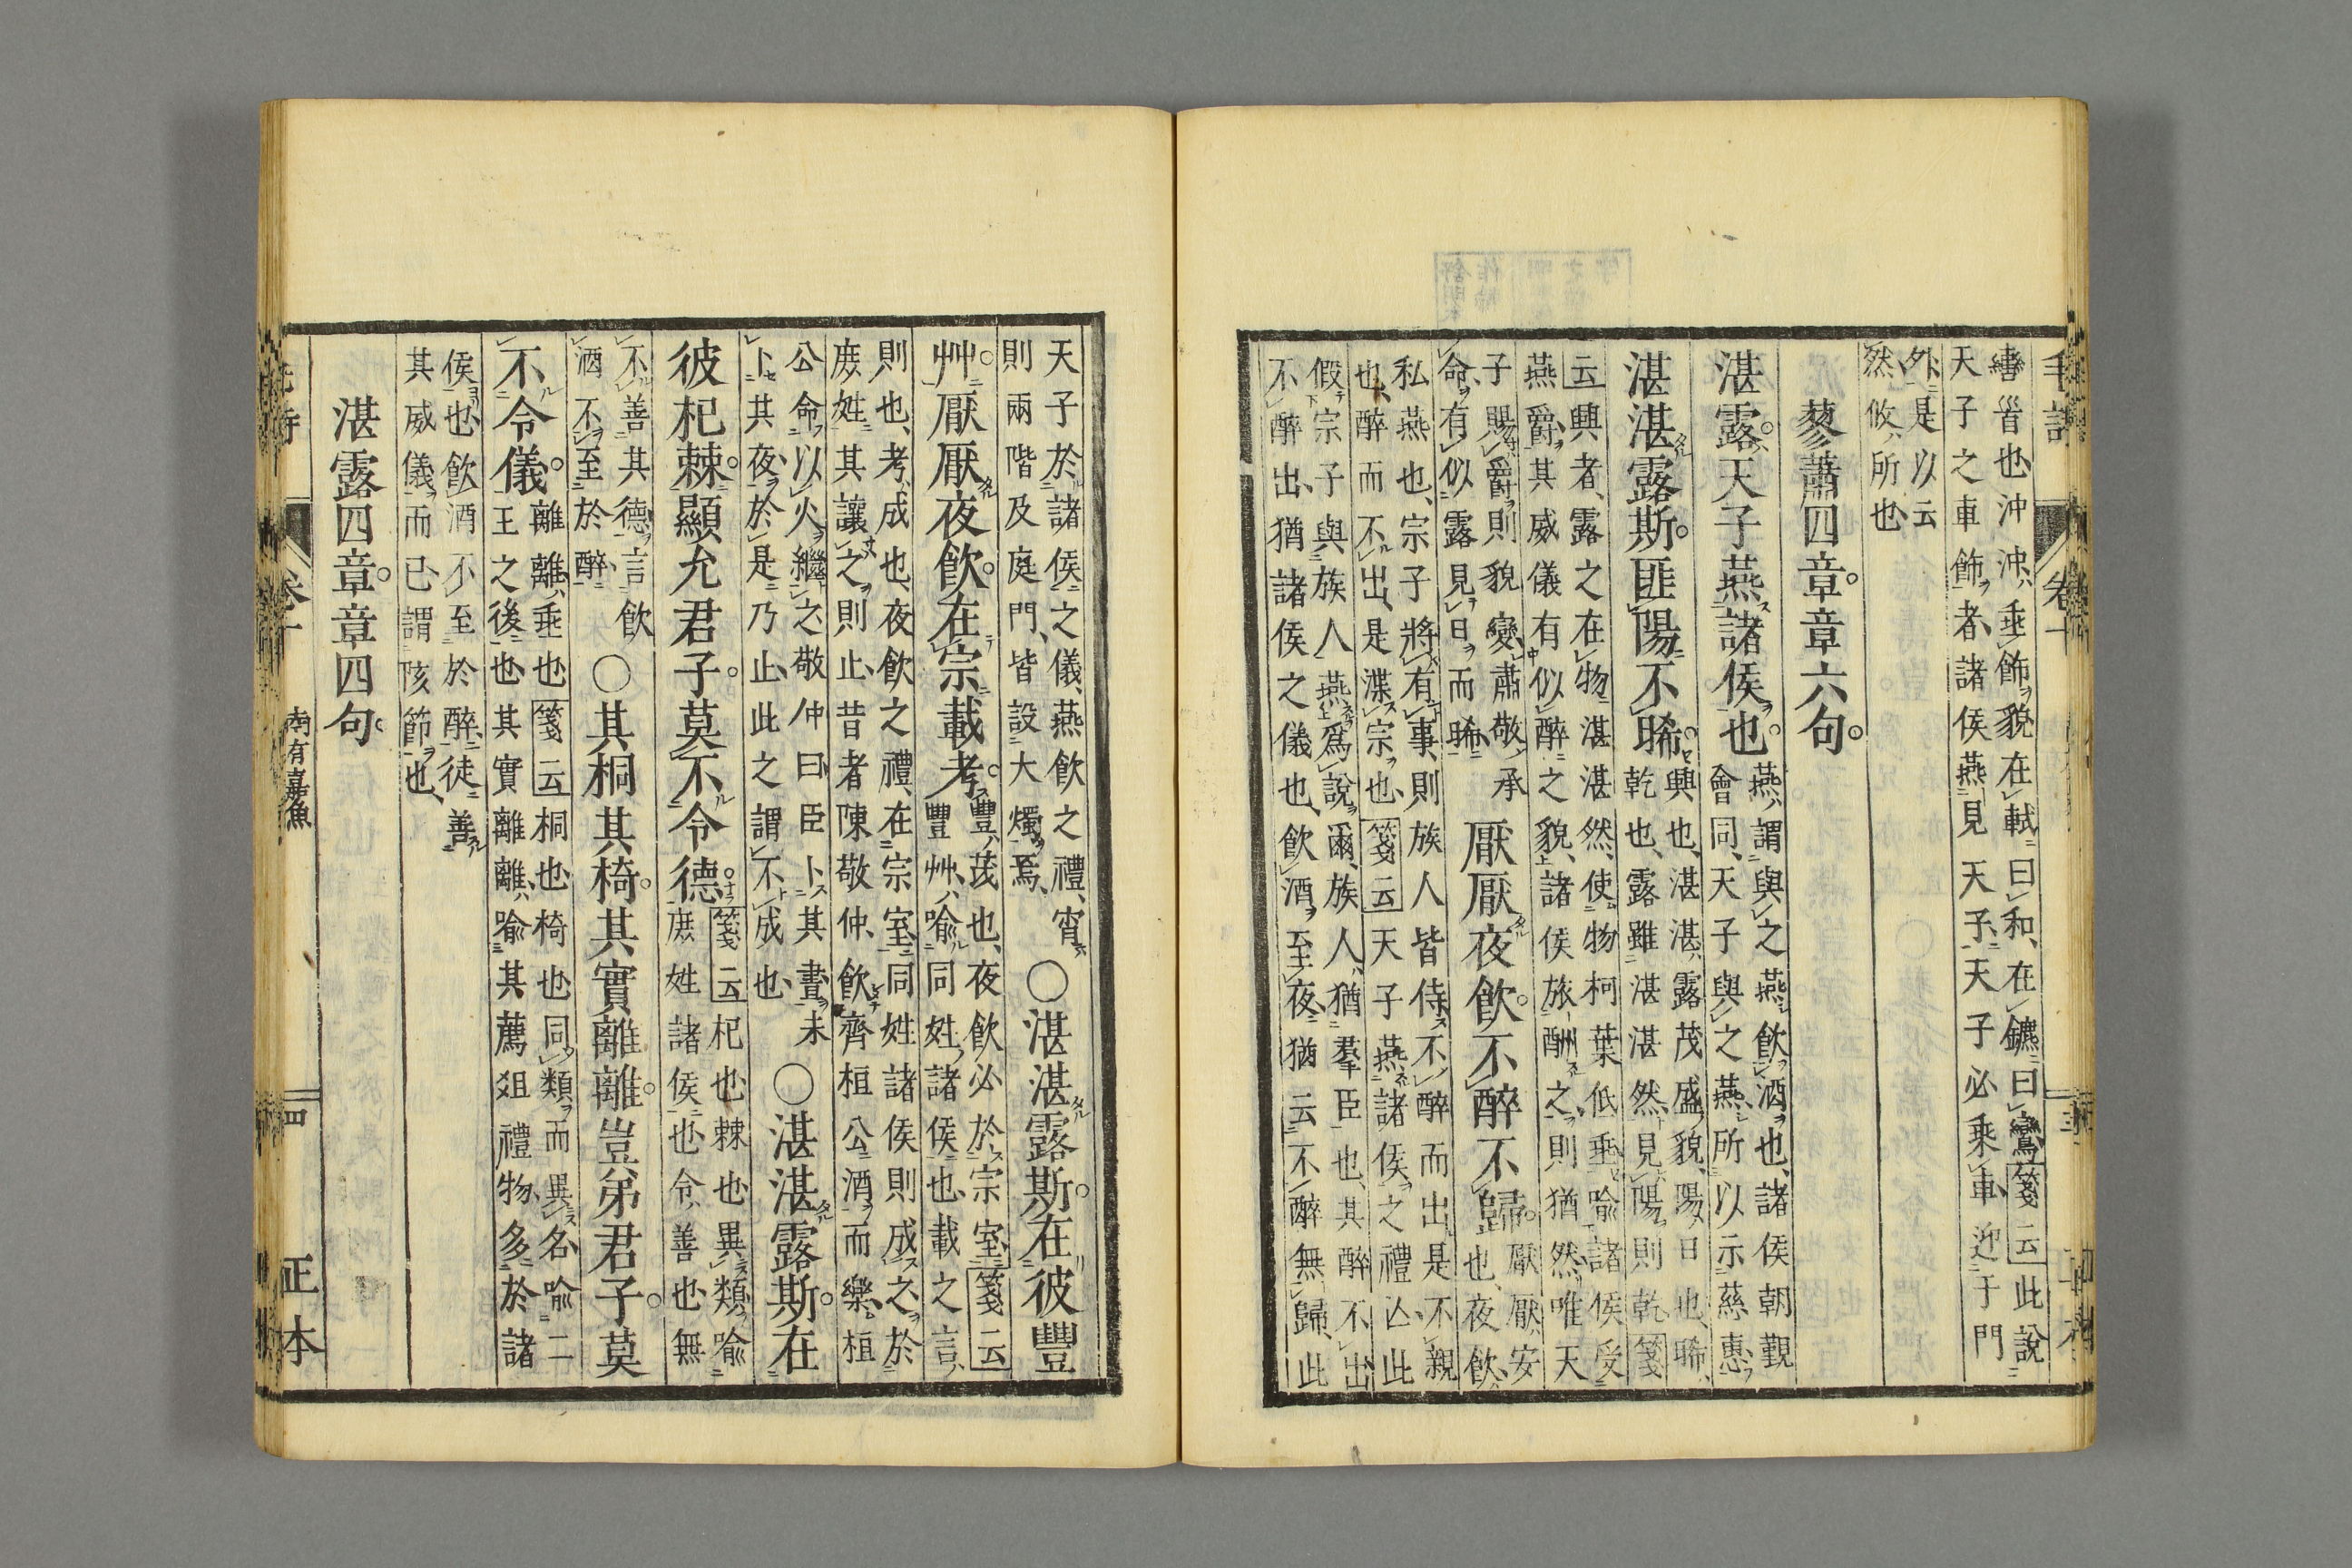 毛詩 卷十 三
轡首也沖沖垂飾貌在軾曰和在鑣曰鸞箋云此說
天子之車飾者諸侯燕見天子天子必乘車迎于門
外是以云
然攸所也
蓼蕭四章章六句
湛露天子燕諸侯也
燕謂與之燕飲酒也諸侯朝覲
會同天子與之燕所以示慈惠
湛湛露斯匪陽不晞
興也湛湛露茂盛貌陽日也晞
乾也露雖湛湛然見陽則乾箋
云興者露之在物湛湛然使物柯葉低垂喻諸侯受
燕爵其威儀有似醉之貌諸侯旅酬之則猶然唯天
子賜爵則貌變肅敬承
命有似露見日而晞
厭厭夜飲不醉不歸
厭厭安
也夜飲
私燕也宗子將有事則族人皆侍不醉而出是不親
也醉而不出是渫宗也箋云天子燕諸侯之禮亾此
假宗子與族人燕爲說爾族人猶羣臣也其醉不出
不醉出猶諸侯之儀也飲酒至夜猶云不醉無歸此
天子於諸侯之儀燕飲之禮宵
則兩階及庭門皆設大燭焉
○湛湛露斯在彼豐
艸厭厭夜飲在宗載考
豐茂也夜飲必於宗室箋云
豐艸喻同姓諸侯也載之言
則也考成也夜飲之禮在宗室同姓諸侯則成之於
庶姓其讓之則止昔者陳敬仲飲齊桓公酒而樂桓
公命以火繼之敬仲曰臣卜其晝未
卜其夜於是乃止此之謂不成也
○湛湛露斯在
彼杞棘顯允君子莫不令德
箋云杞也棘也異類喻
庶姓諸侯也令善也無
不善其德言飲
酒不至於醉
○其桐其椅其實離離豈弟君子莫
不令儀
離離垂也箋云桐也椅也同類而異名喻二
王之後也其實離離喻其薦俎禮物多於諸
侯也飲酒不至於醉徒善
其威儀而已謂陔節也
湛露四章章四句
毛詩 卷十 南有嘉魚 四 正本